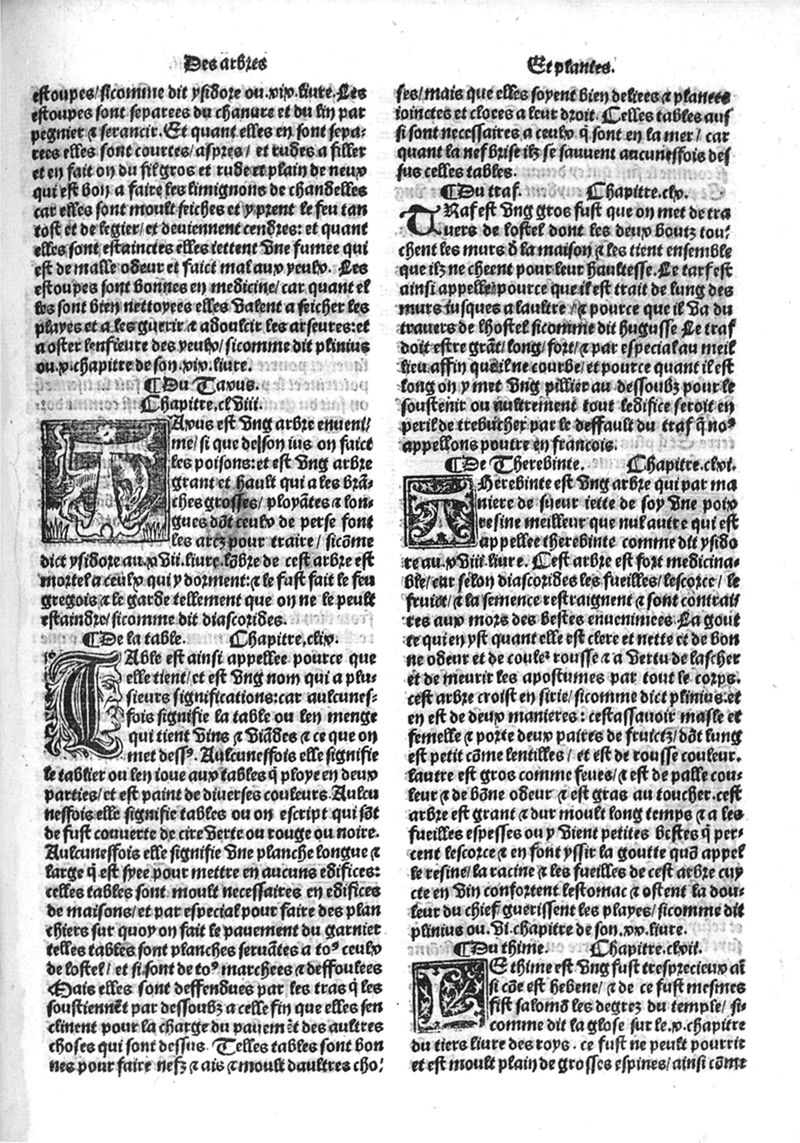 Des arbres
estoupes/sicomme dit ysidore ou.xix.livre. Les
estoupes sont separees du chanure et du lin par
pegnier & serancir. Et quant elles en sont sepa-
rees elles sont courtes/aspres/ et rudes a filler
et en fait on du fil gros et rude et plain de neux
qui est bon a faire les limignons de chandelles
car elles sont moult seiches et y prent le feu tan
tost et de legier/et deviennent cendres: et quant
elles sont estainctes elles iettent Une fumee qui
est de malle odeur et faict mal aux yeulx. Les
estoupes sont bonnes en medicine/car quant el
les sont bien nettoyees elles Valent a seicher les
playes et a les guerir & adoulcir les arseures: et
a oster lenfleure des yeulx/sicomme dit plinius
ou.x.chapitre de son.xix.livre.
¶Du Taxus.
Chapitre.clviii.
TAxus est Ung arbre enueni/
me/si que de son ius on faict
les poisons: et est Ung arbre
grant et hault qui a les brā-
ches grosses/ployātes & lon-
gues dōt ceulx de perse font
les arcz pour traire/sicōme
dict ysidore au.xvii.livre. lōbre de cest arbre est
mortel a ceulx qui y dorment: & le fust fait le feu
gregois & le garde tellement que on ne le peult
estaindre/sicomme dit diascorides.
¶De la table. Chapitre.clix.
TAble est ainsi appellee pource que
elle tient/et est Ung nom qui a plu-
sieurs significations: car aulcunes-
fois signifie la table ou len menge
qui tient Vins & Viādes & ce que on
met dessꝰ. Aulcuneffois elle signifie
le tablier ou len ioue aux tables q̄ ploye en deux
parties/et est paint de diverses couleurs. Aulcu
neffois elle signifie tables ou on escript qui sōt
de fust couverte de cire Verte ou rouge ou noire.
Aulcuneffois elle signifie Une planche longue &
large q̄ est syee pour mettre en aucuns edifices:
celles tables sont moult necessaires en edifices
de maisons/et par especial pour faire des plan
chiers sur quoy on fait le pavement du garnier
telles tables sont planches servātes a toꝰ ceulx
de lostel/et si sont de toꝰ marchees & deffoulees
Mais elles sont deffendues par les tras q̄ les
soustiennēt par dessoubz a celle fin que elles sen
clinent pour la charge du pavemēt des aultres
choses qui sont dessus. Telles tables sont bon
nes pour faire nefz & ais & moult daultres cho/
Et plantes.
ses/mais que elles soyent bien delirees & planees
ioinctes et closes a leur droit. Celles tables auf
si sont necessaires a ceulx q̄ sont en la mer/ car
quant la nef brise ilz se sauvent aucuneffois des
sus celles tables.
¶Du traf. Chapitre.clx.
TRaf est Ung gros fust que on met de tra
Uers de lostel dont les deux boutz tou/
chent les murs d̄ la maison & les tient ensemble
que ilz ne cheent pour leur haultesse. Le tarf est
ainsi appelle pource que il est trait de lung des
murs iusques a laultre/& pource que il Va du
travers de lhostel sicomme dit hugusse Le traf
doit estre grāt/long/fort/& par especial au meil
lieu affin quil ne courbe/et pource quant il est
long on y met Ung pillier au dessoubz pour le
soustenir ou aultrement tout ledifice seroit en
peril de trebucher par le deffault du traf q̄ noꝰ
appellons poutre en francois.
¶De Therebinte. Chapitre.clxi.
THerebinte est Ung arbre qui par ma
niere de sueur iette de soy Une poix
resine meilleur que nul autre qui est
appellee therebinte comme dit ysido
re au.xviii.livre. Cest arbre est fort medicina/
ble/car selon diascorides les fueilles/lescorce/le
fruict/& la semence restraignent & sont contrai/
res aux mors des bestes enuenimees La gout
te qui en yst quant elle est clere et nette et de bon
ne odeur et de couleꝰ rousse & a Vertu de lascher
et de meurir les apostumes par tout le corps.
cest arbre croist en sirie/sicomme dict plinius. et
en est de deux manieres: cestassavoir masle et
femelle & porte deux paires de fruictz/dōt lung
est petit cōme lentilles/ et est de rousse couleur.
lautre est gros comme feves/& est de palle cou-
leur & de bōne odeur & est gras au toucher. cest
arbre est grant & dur moult long temps & a les
fueilles espesses ou y Vient petites bestes q̄ per-
cent lescorce & en font yssir la goutte quō appel
le resine/la racine & les fueilles de cest arbre cuy
cte en Vin confortent lestomac & ostent la dou-
leur du chief/guerissent les playes/sicomme dit
plinius ou.vi.chapitre de son.xx.livre.
¶Du thime. Chapitre.clxii.
LE thime est Ung fust tresprecieux aī
si cōe est hebene/& de ce fust mesmes
fist salomō les degrez du temple/si-
comme dit la glose sur le.x.chapitre
du tiers livre des roys. ce fust ne peult pourrir
et est moult plain de grosses espines/ainsi cōme